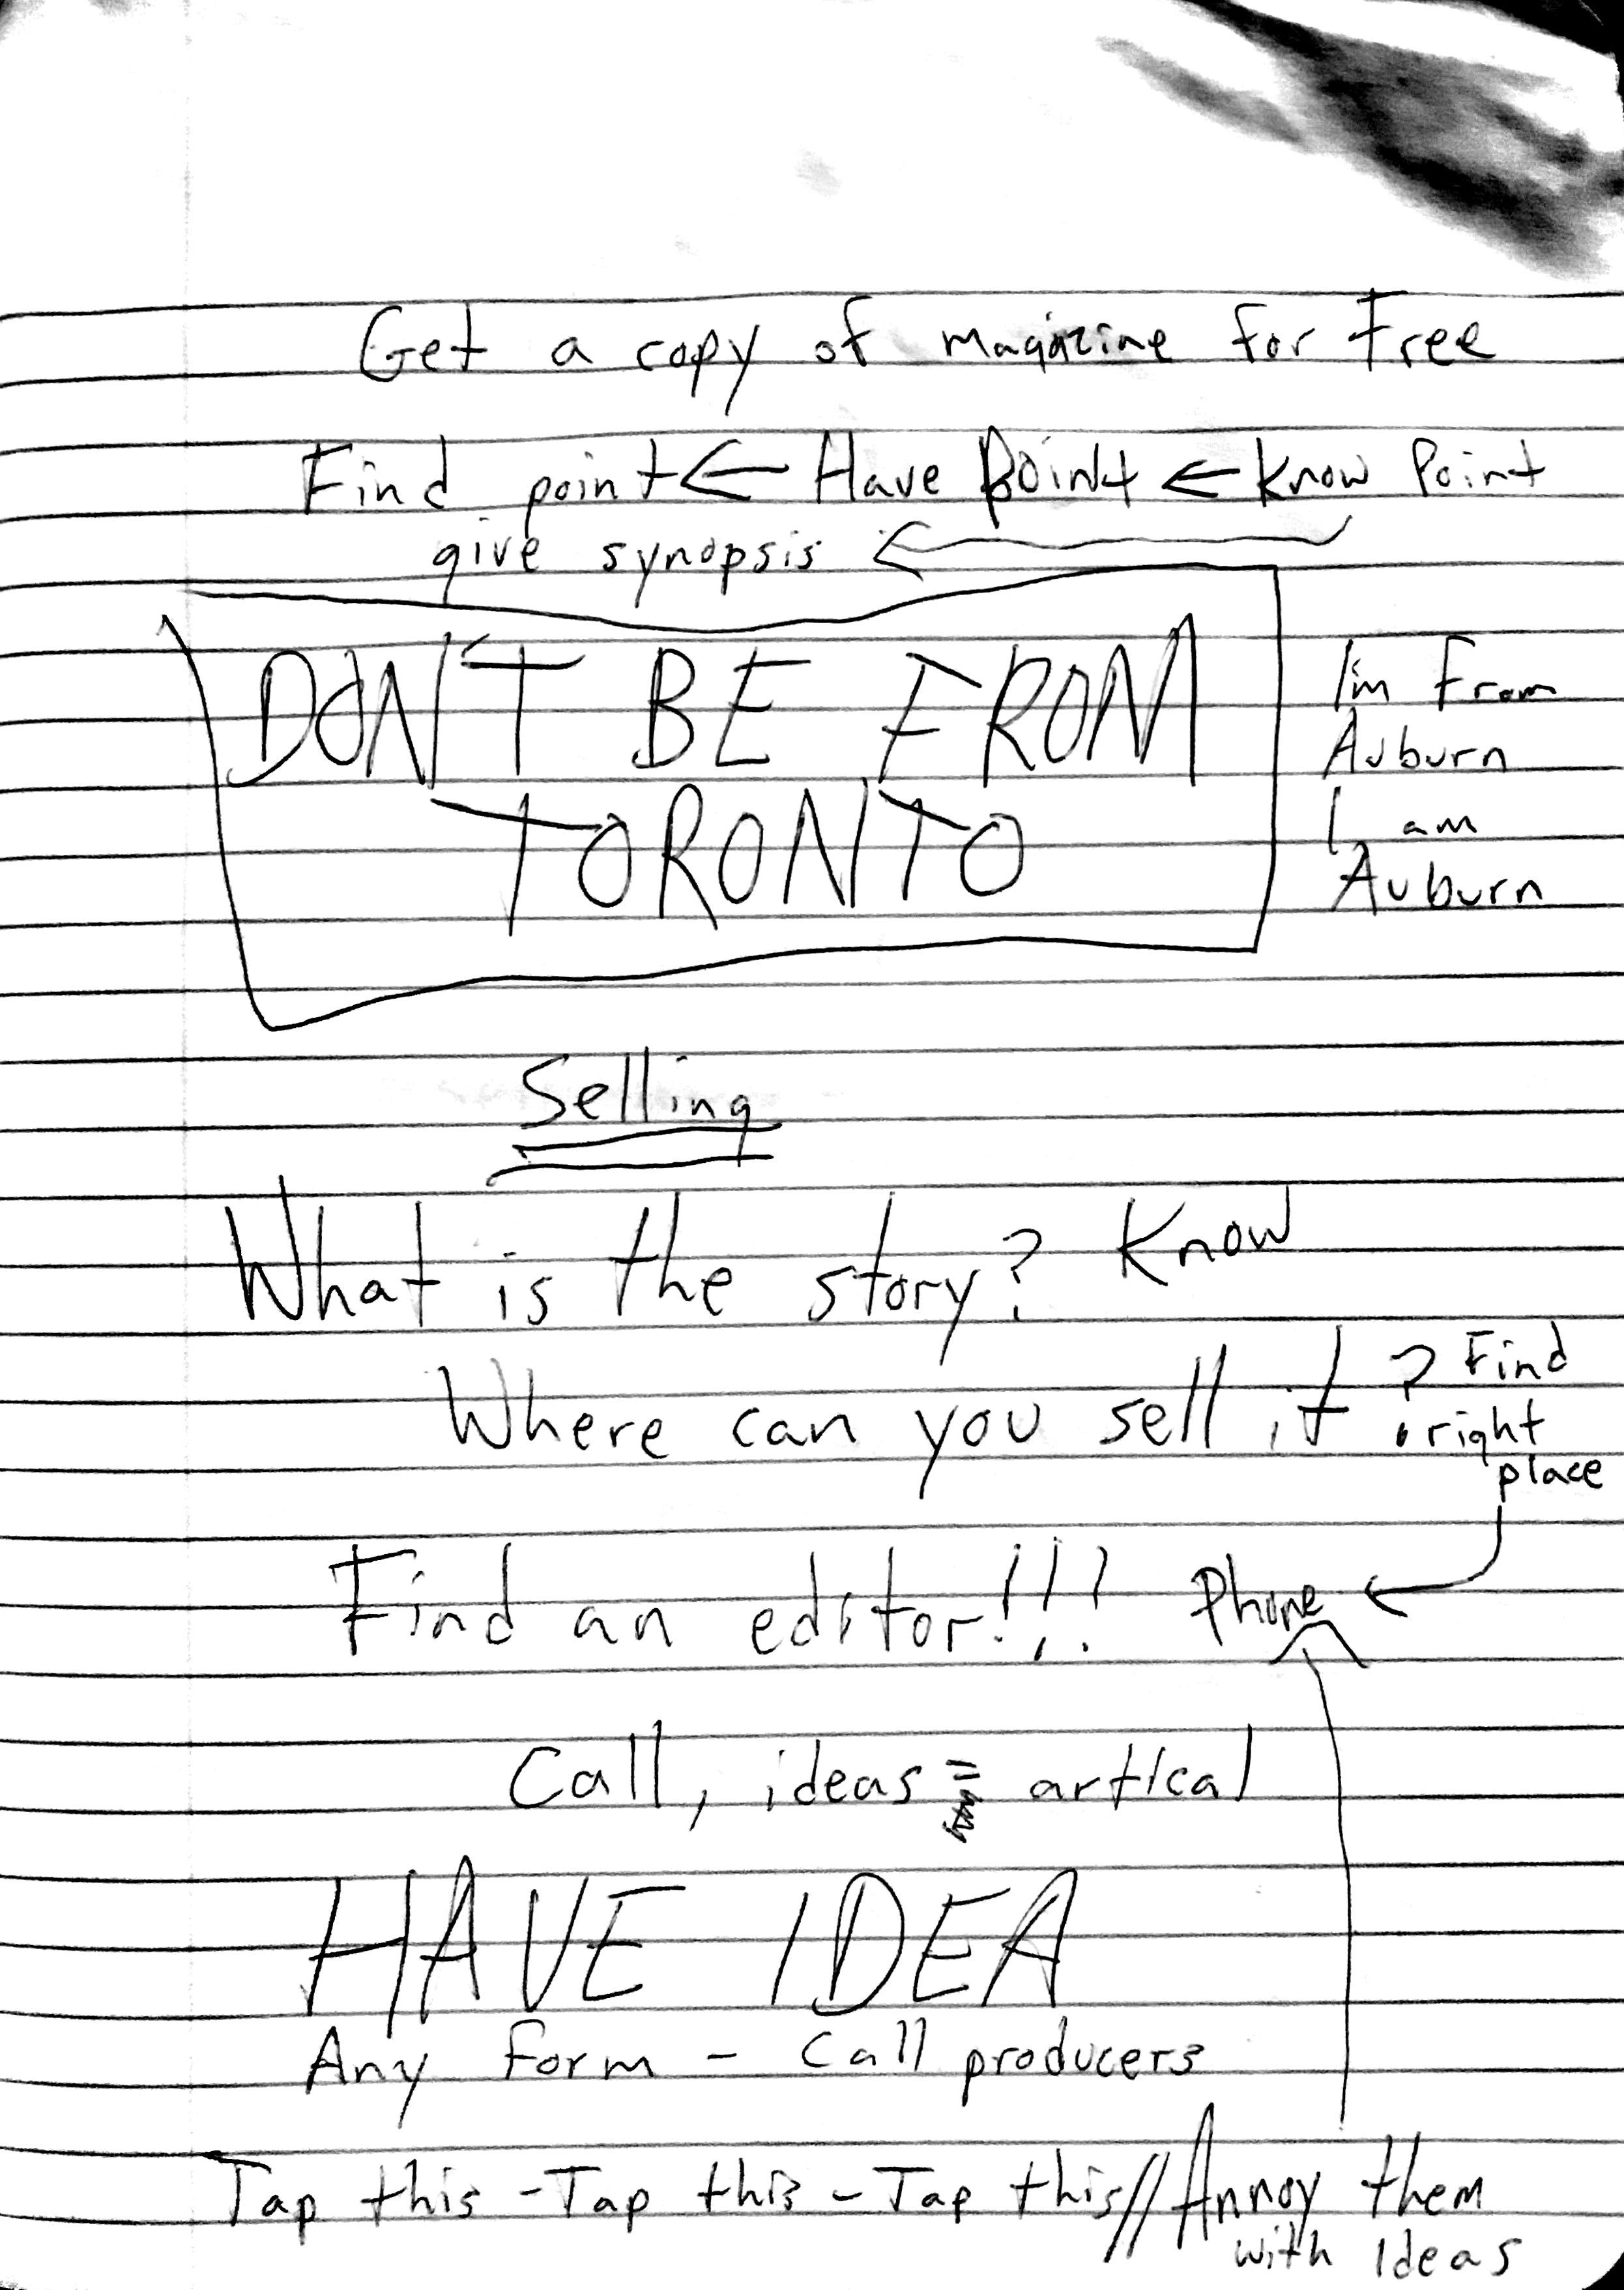 Get a copy of magazine for Free
Find point ← Have Point ← Know Point
give synopsis ←
DON'T BE FROM
TORONTO
I'm From
Auburn
I am
Auburn
Selling
What is the story? Know
Where can you sell it? Find
right
place
Find an editor!!! Phone ←
Call, ideas = artical
HAVE IDEA
Any form - Call producers
Tap this - Tap this - Tap this // Annoy them
with Ideas